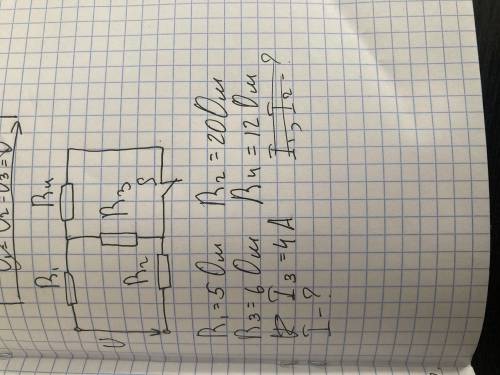 U₁=U₂=U₃=U
R₁ R₄
R₃
U R₂ S
R₁=5 Ом R₂=20 Ом
R₃=6 Ом R₄=12 Ом
I₃=4 А I₁, I₂-?
I-?